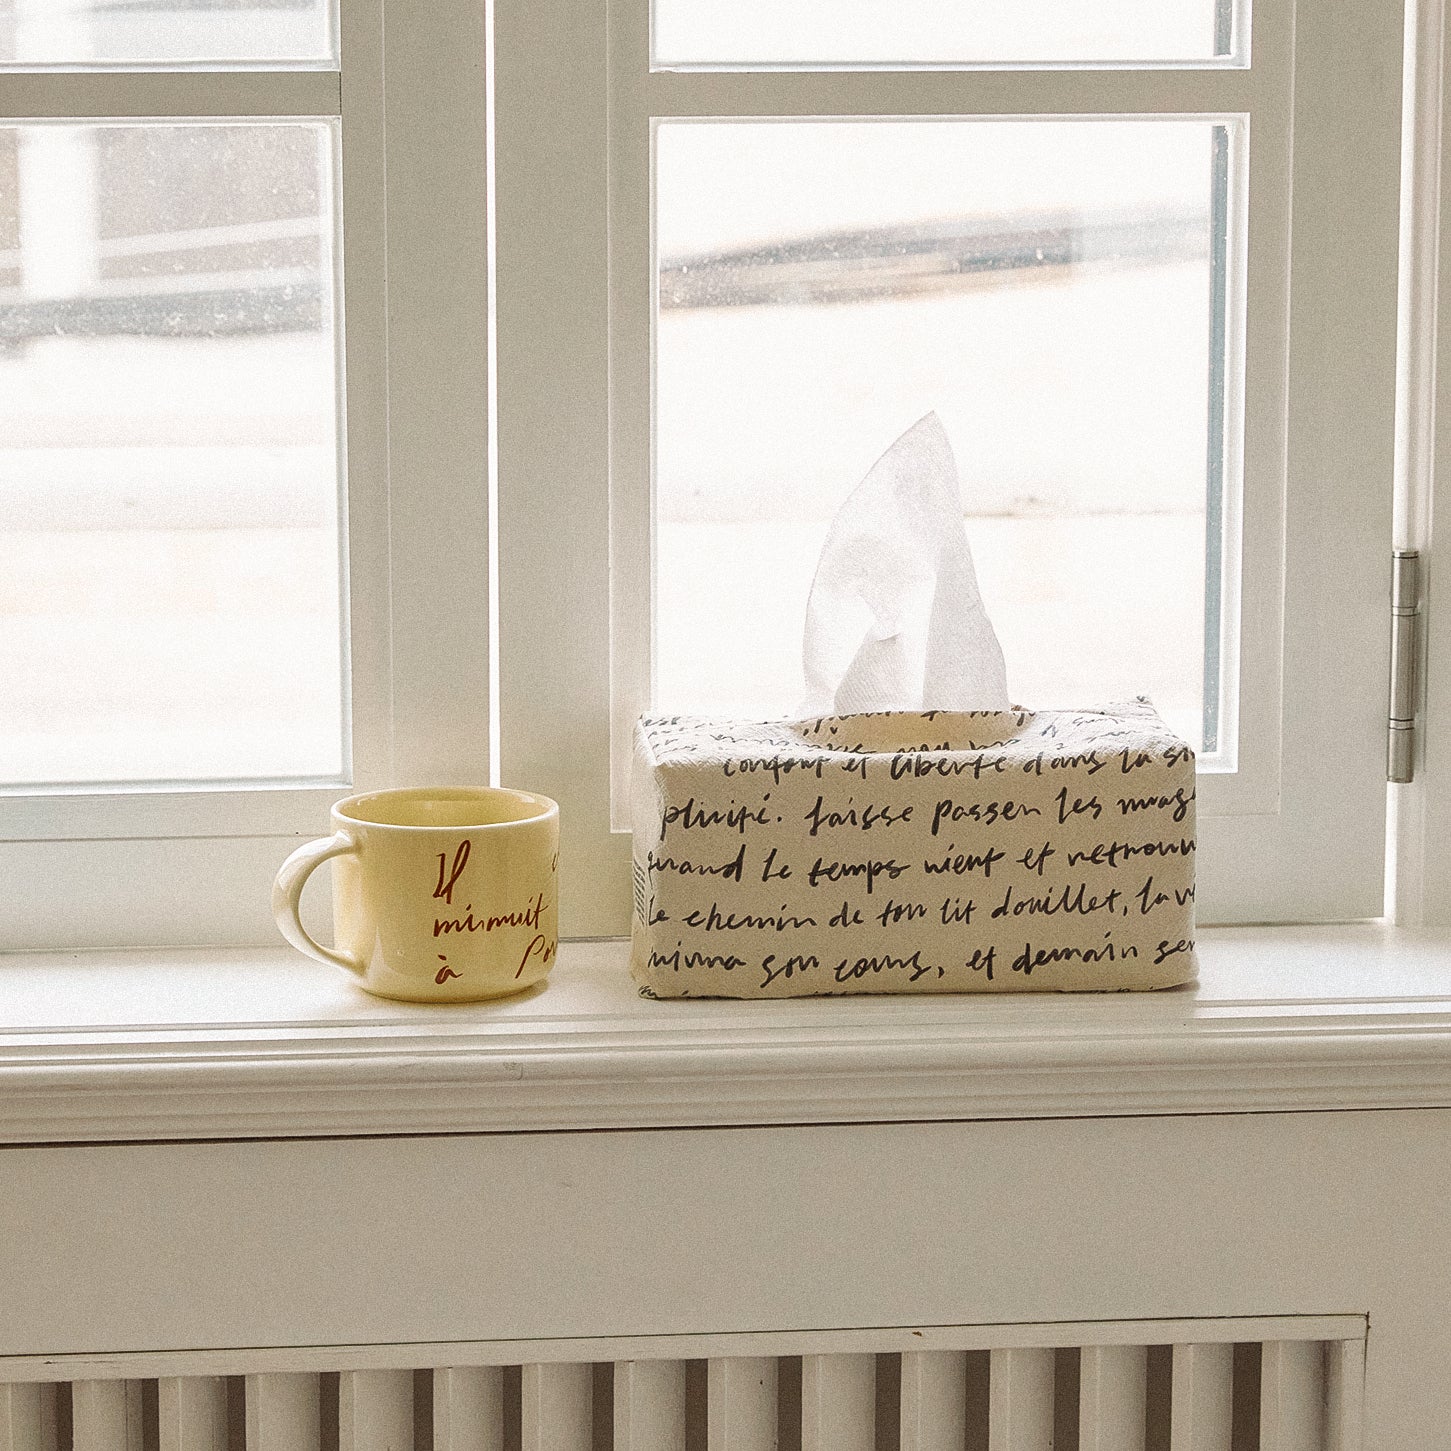 Il
minuit
à
confort et liberté dans la
plicité. laisse passer les nuag
quand le temps vient et retrouv
le chemin de ton lit douillet, la v
suivra son cours, et demain ser